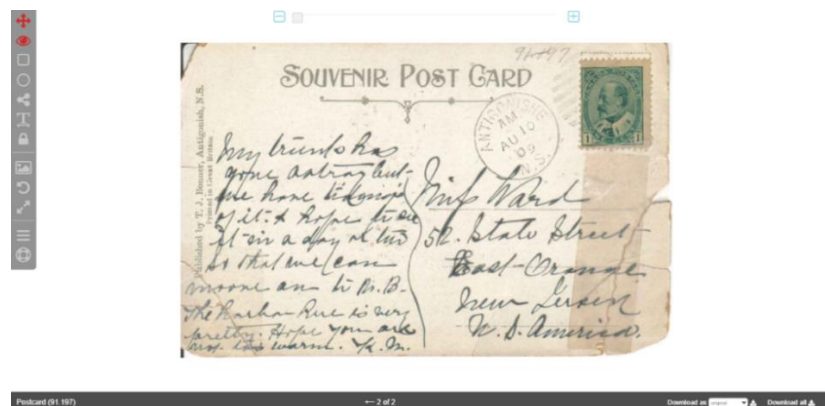 91.197
SOUVENIR POST CARD
ANTIGONISH
AM
AU 10
09
N.S.
Published by T. J. Bonner, Antigonish, N.S.
Printed in Great Britain.
My trunk has
gone astray but
we have tidings
of it & hope to see
it in a day or two
so that we can
move on to N.B.
The harbor here is very
pretty. Hope you are
not too warm. K. M.
Miss Ward
52. State Street
East Orange
New Jersey
U. S. America.
Postcard (91.197)
2 of 2
Download as
original
Download all